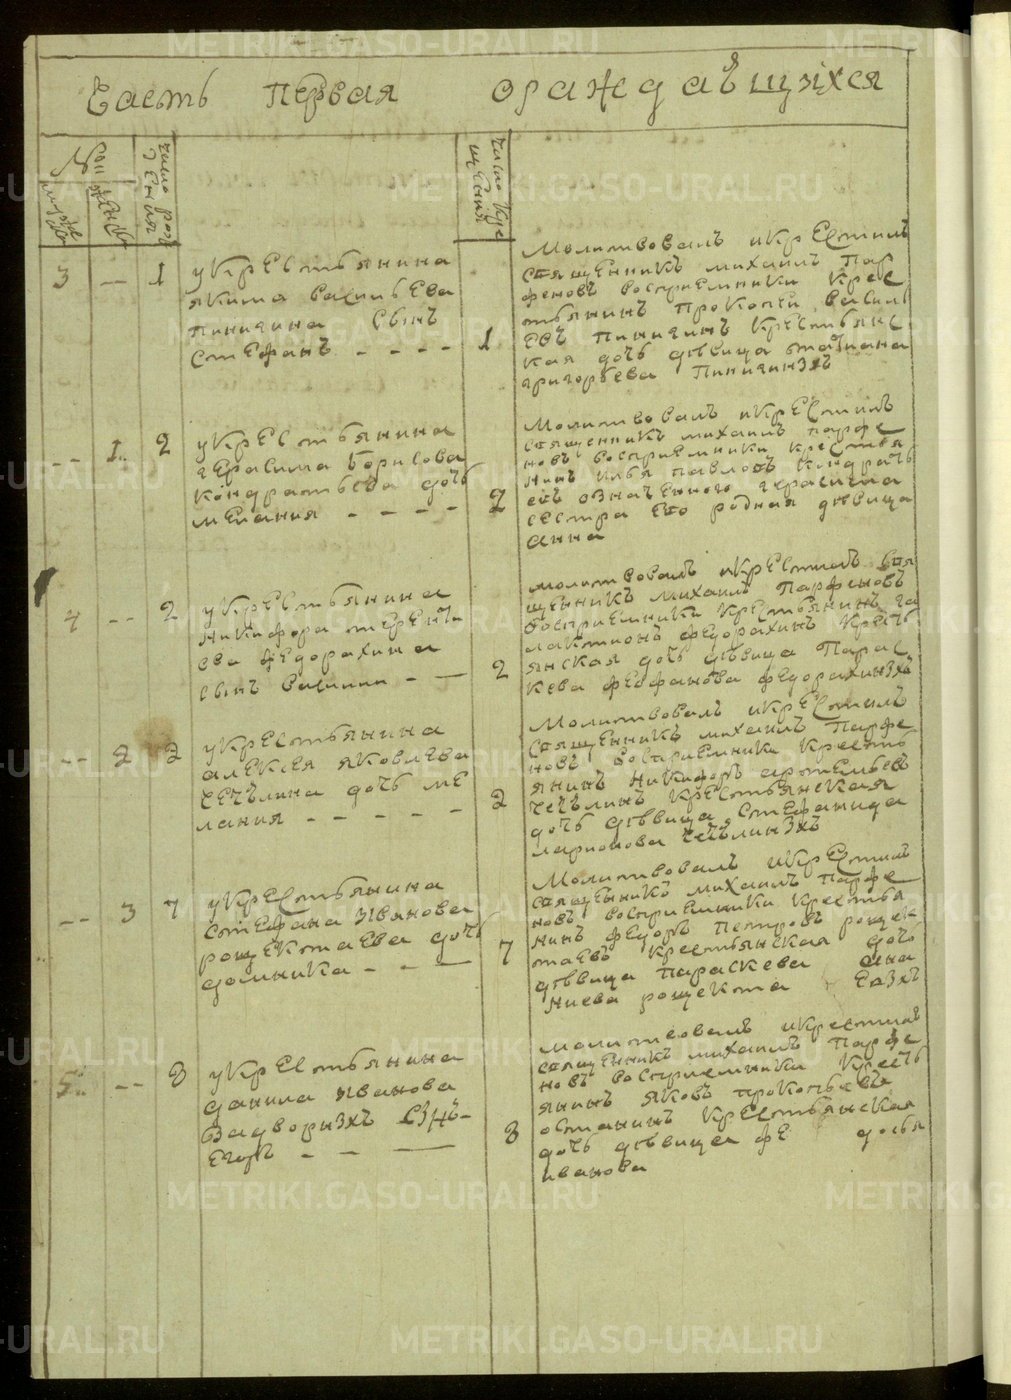 Часть первая о раждавшихся
№
число рож
дения
число кре
щения
3 — 1
у крестьянина
якима васильева
пинигина сынъ
стефанъ - - - -
1
Молитвовалъ и крестилъ
священникъ михаилъ пар
феновъ восприемники крес
тьянинъ прокопей василь
евъ пинигинъ крестьянс
кая дочь девица татиана
григорьева пинигинзхъ
-- 1.. 2
у крестьянина
герасима борисова
кондратьева дочь
мелания - - - -
2
Молитвовалъ и крестилъ
священникъ михаилъ парфе
новъ восприемники крестья
нинъ илья павловъ кондрать
евъ означенного герасима
сестра ево родная девица
анна
4 -- 2
у крестьянина
никифора теренть
ева федорахина
сынъ василии - —
2
молитвовалъ и крестилъ свя
щенникъ михаилъ парфеновъ
восприемники крестьянинъ га
лактионъ федорахинъ кресть
янская дочь девица парас
кева феофанова федорахинзхъ
-- 2 2
у крестьянина
алексея яковлева
чечълина дочь ме
лания - - - - -
2
Молитвовалъ и крестилъ
священникъ михаилъ парфе
новъ восприемники кресть
янинъ никифоръ артемьевъ
чечълинъ крестьянская
дочь девица стефанида
ларионова чечълинзхъ
-- 3 7
у крестьянина
стефана званова
рощектаева дочь
домника - - —
7
Молитвовалъ и крестилъ
священникъ михаилъ парфе
новъ восприемники крестья
нинъ федоръ петровъ рощек
таевъ крестьянская дочь
девица параскева ана
ниева рощекта евзхъ
5.. -- 8
у крестьянина
данила иванова
задворнзхъ сзнъ-
егоръ - - —
8
молитвовалъ и крестилъ
священникъ михаилъ парфе
новъ восприемники кресть
янинъ яковъ прокопьевъ
останинъ крестьянская
дочь девица фе досья
иванова
METRIKI.GASO-URAL.RU